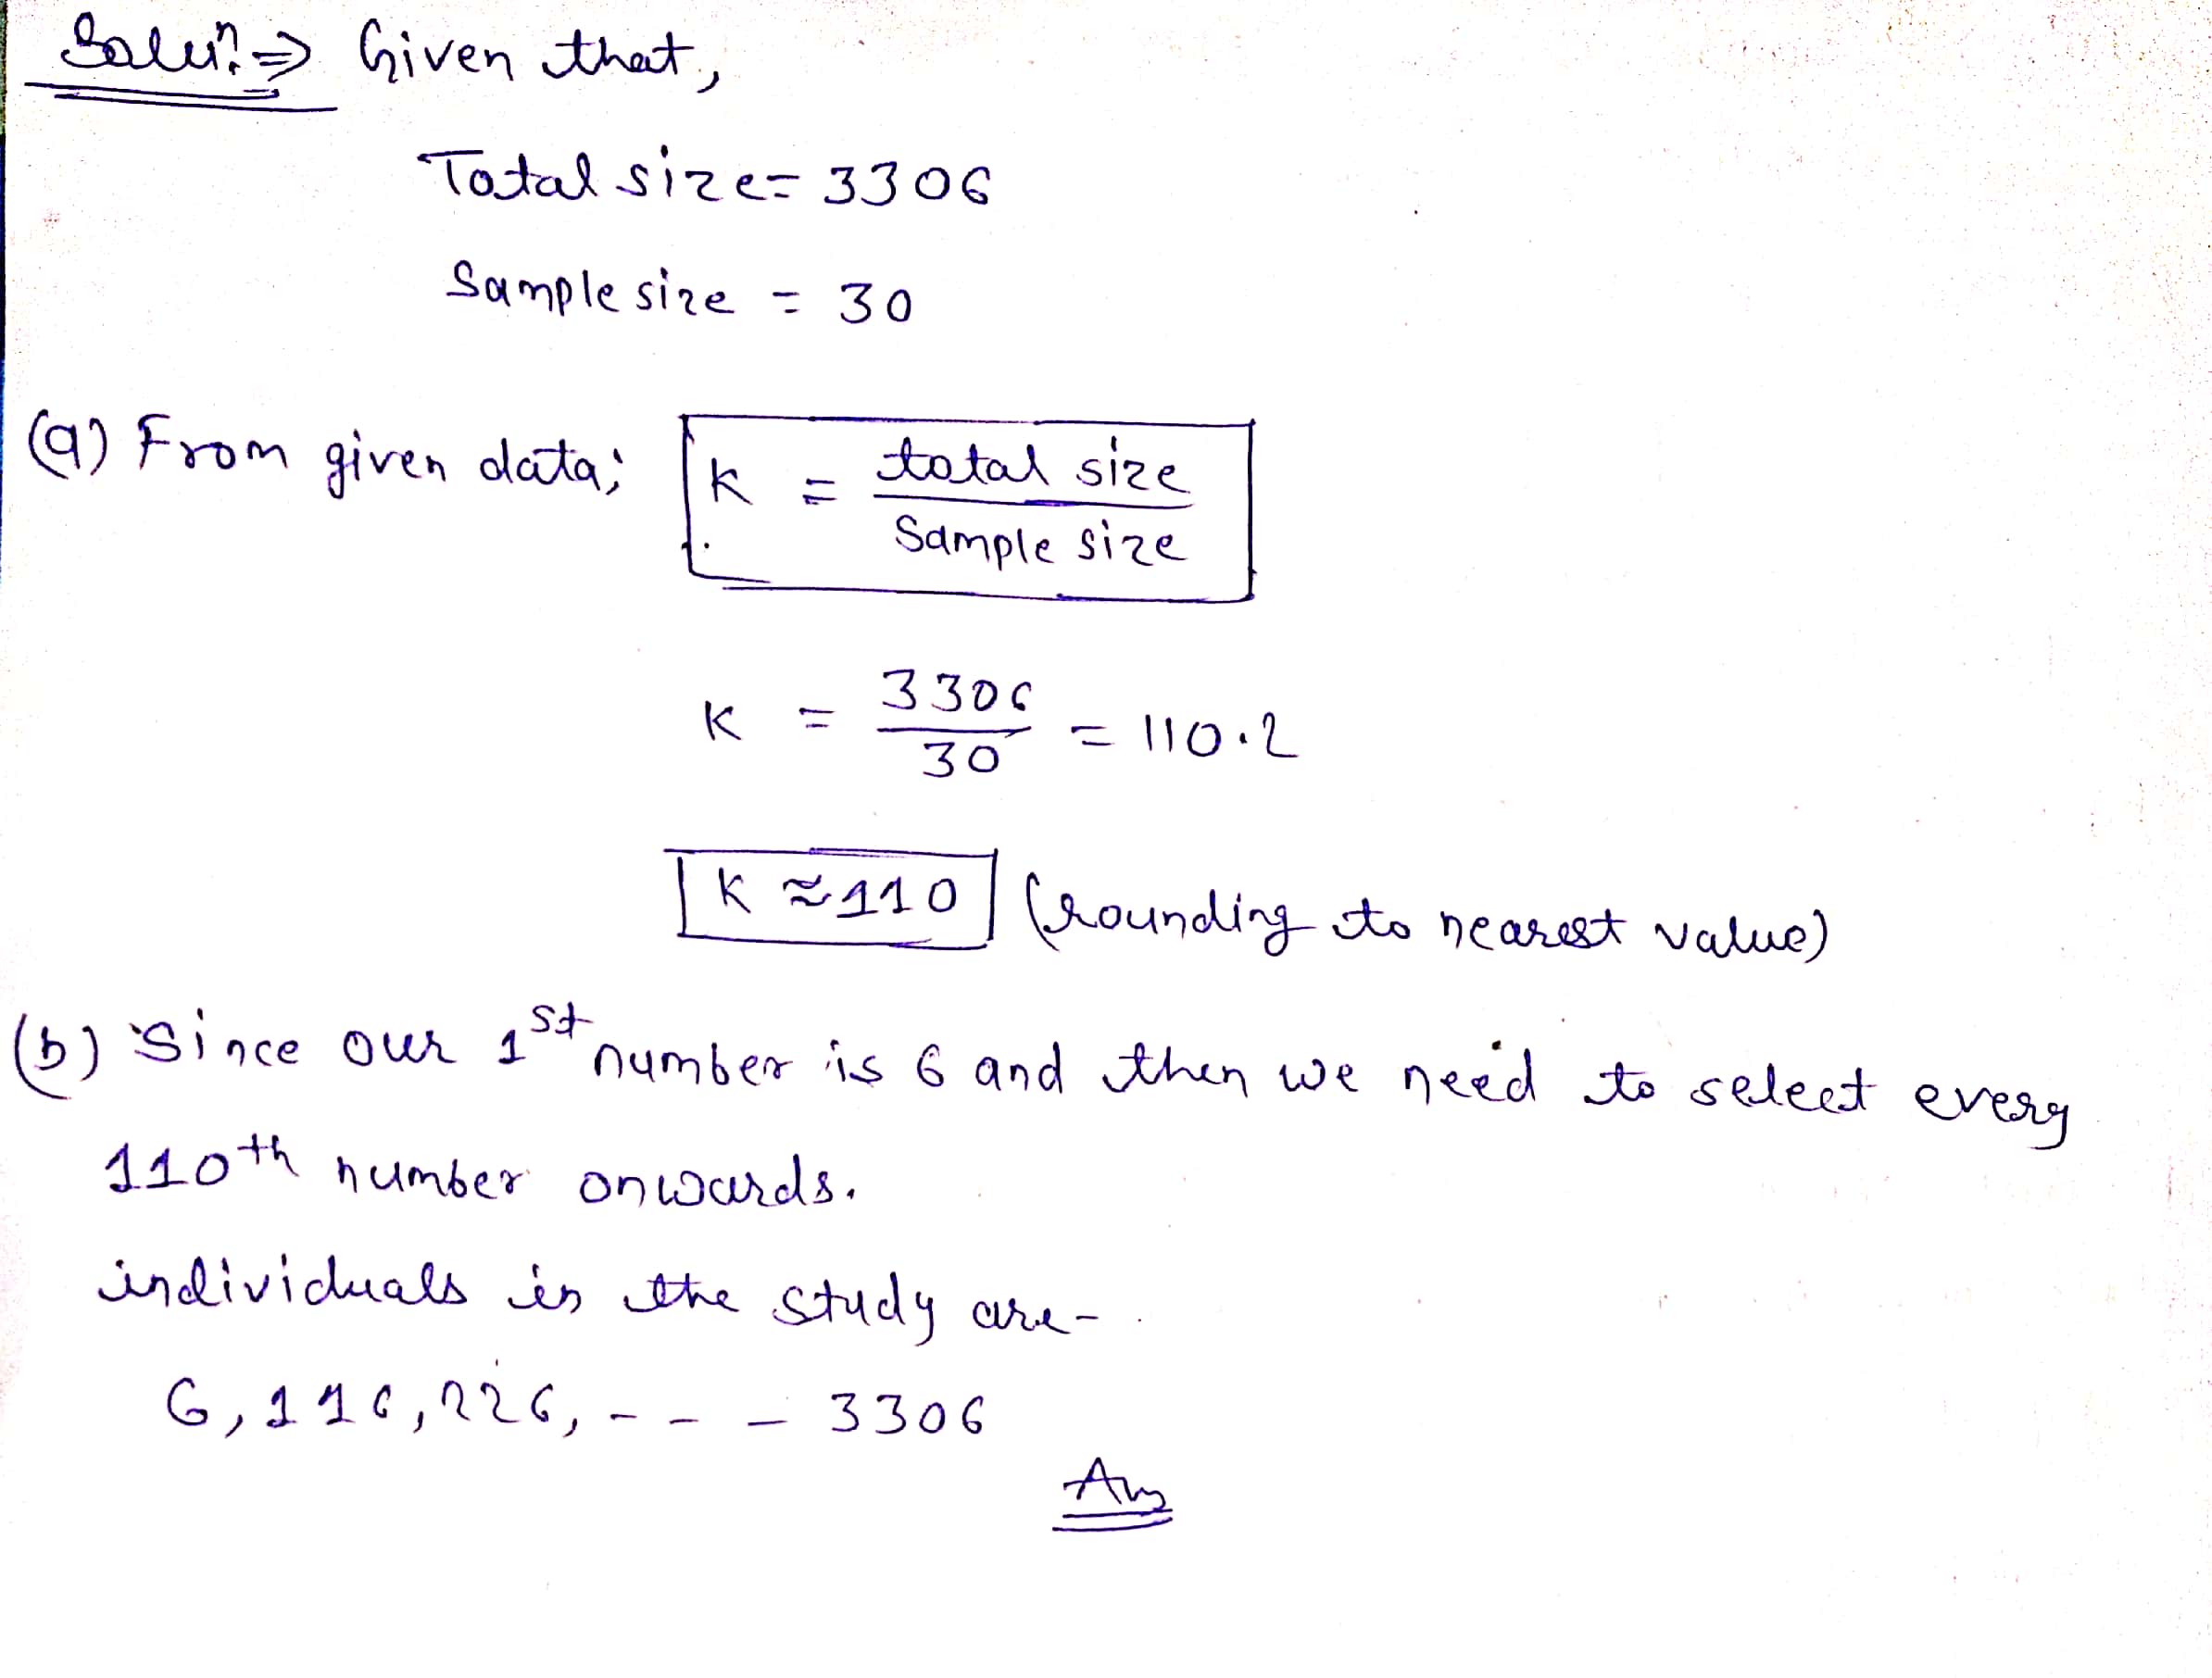 Solun. ⇒ Given that,
Total size = 3306
Sample size = 30
(a) From given data; K = total size / Sample size
K = 3306 / 30 = 110.2
K ≈ 110 (rounding to nearest value)
(b) Since our 1st number is 6 and then we need to select every
110th number onwards.
individuals in the study are -
6, 116, 226, - - - 3306
Ans